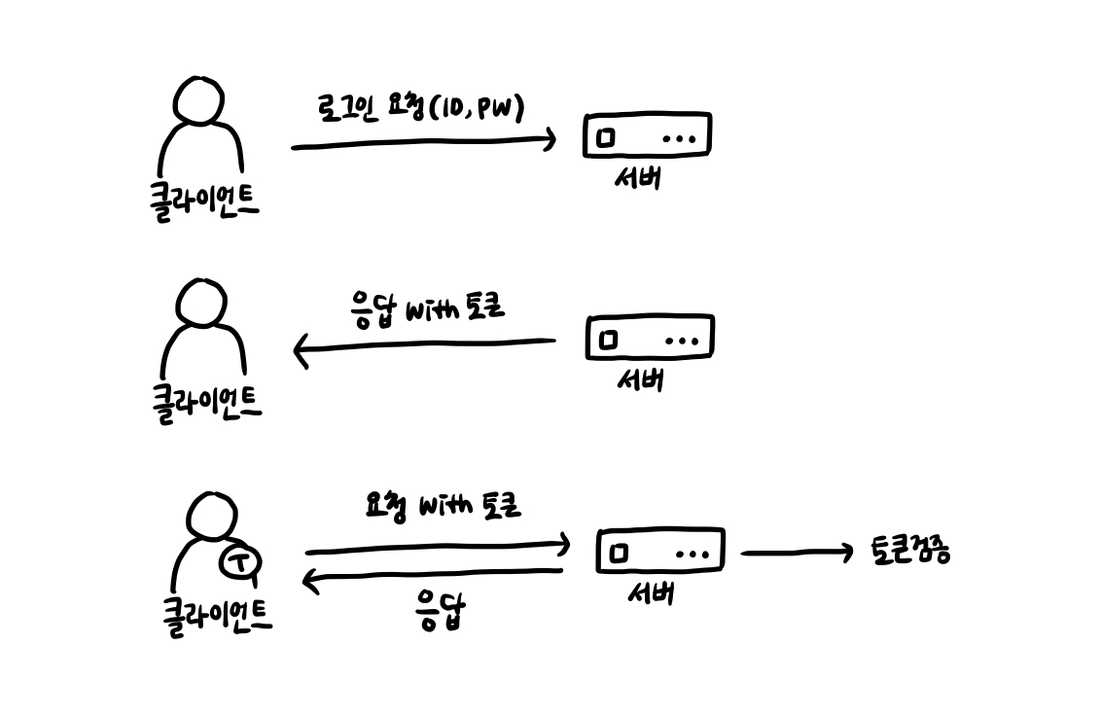 로그인 요청(ID, PW)
클라이언트
서버
응답 with 토큰
클라이언트
서버
요청 with 토큰
T
토큰검증
클라이언트
응답
서버